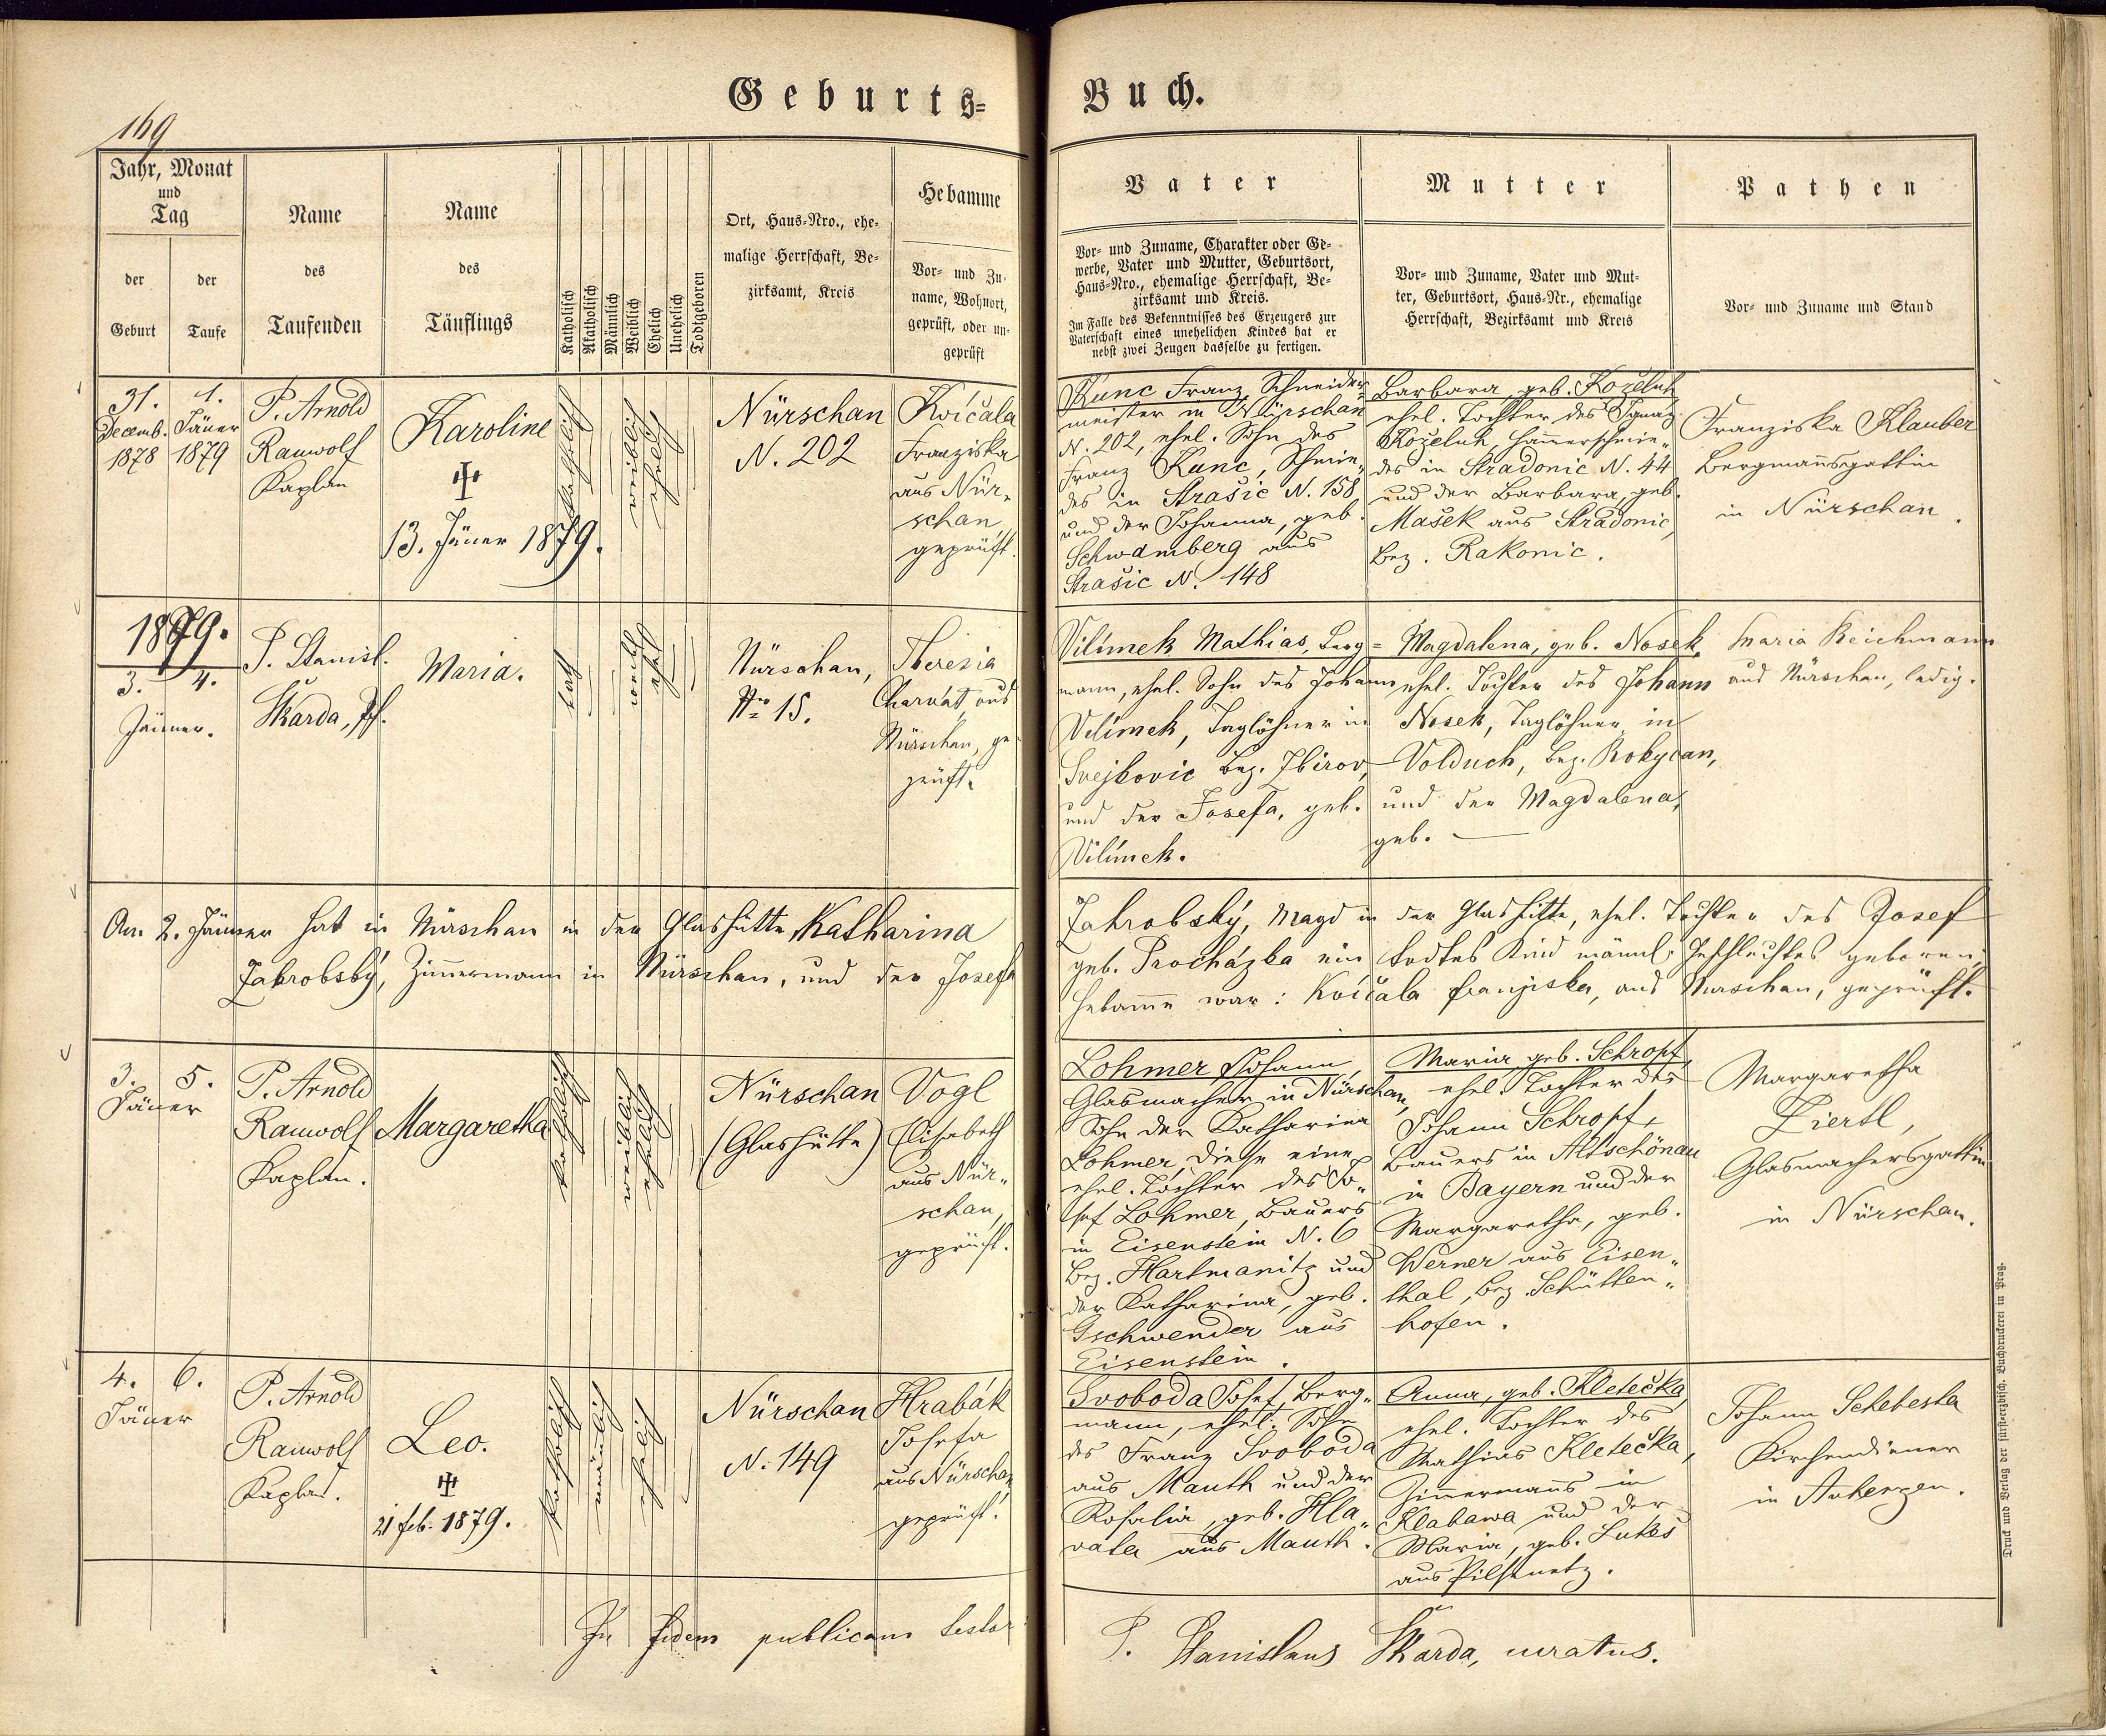 Geburts=
Buch.
169
Jahr, Monat
und
Tag
der
Geburt
der
Taufe
Name
des
Taufenden
Name
des
Täuflings
Katholisch
Akatholisch
Männlich
Weiblich
Ehelich
Unehelich
Todtgeboren
Ort, Haus-Nro., ehe-
malige Herrschaft, Be-
zirksamt, Kreis
Hebamme
Vor- und Zu-
name, Wohnort,
geprüft, oder un-
geprüft
Vater
Vor- und Zuname, Charakter oder Ge-
werbe, Vater und Mutter, Geburtsort,
Haus-Nro., ehemalige Herrschaft, Be-
zirksamt und Kreis.
Im Falle des Bekenntnisses des Erzeugers zur
Vaterschaft eines unehelichen Kindes hat er
nebst zwei Zeugen dasselbe zu fertigen.
Mutter
Vor- und Zuname, Vater und Mut-
ter, Geburtsort, Haus-Nr., ehemalige
Herrschaft, Bezirksamt und Kreis
Pathen
Vor- und Zuname und Stand
31.
Decemb.
1878
1.
Jäner
1879
P. Arnold
Rauwolf
Kaplan
Karoline
13. Jäner 1879.
katholisch
weiblich
ehelich
Nürschan
N. 202
Kvíčala
Franziska
aus Nür„
schan
geprüft.
Kunc Franz, Schneider-
meister in Nürschan
N. 202, ehel. Sohn des
Franz Kunc, Schmie„
des in Strašic N. 158
und der Johanna, geb.
Schwamberg aus
Strašic N. 148
Barbara, geb. Koželuh
ehel. Tochter des Ignaz
Koželuh, Hammerschmie„
des in Stradonic N. 44
und der Barbara, geb.
Mašek aus Stradonic,
Bez. Rakonic.
Franziska Klauber
Bergmannsgattin
in Nürschan.
1879.
3. 4.
Jänner.
P. Stanisl.
Škarda, Pf.
Maria.
kath
weibl
ehel
Nürschan,
Nro 15.
Theresia
Charvát, aus
Nürschan, ge-
prüft.
Vilímek Mathias, Berg=
mann, ehel. Sohn des Johann
Vilímek, Taglöhner in
Svejkovic Bez. Zbirov,
und der Josefa, geb.
Vilímek.
Magdalena, geb. Nosek,
ehel. Tochter des Johann
Nosek, Taglöhner in
Volduch, Bez. Rokycan,
und der Magdalena,
geb. —
Maria Reichmann
aus Nürschan, ledig.
Am 2. Jänner hat in Nürschan in der Glashütte Katharina
Zahrobský, Magd in der Glashütte, ehel. Tochter des Josef
Zahrobský, Zimmermann in Nürschan, und der Josefa
geb. Procházka ein todtes Kind männl. Geschlechtes geboren;
Hebamme war: Kvíčala Franziska, aus Nürschan, geprüft.
3. 5.
Jäner
P. Arnold
Rauwolf
Kaplan.
Margaretha
katholisch
weiblich
ehelich
Nürschan
(Glashütte)
Vogl
Elisabeth
aus Nür„
schan,
geprüft.
Lohmer Johann,
Glasmacher in Nürschan,
Sohn der Katharina
Lohmer, diese eine
ehel. Tochter des Jo„
sef Lohmer, Bauers
in Eisenstein N. 6
Bez. Hartmanitz und
der Katharina, geb.
Gschwender aus
Eisenstein.
Maria geb. Schropf,
ehel. Tochter des
Johann Schropf,
Bauers in Altschönau
in Bayern und der
Margaretha, geb.
Werner aus Eisen„
thal, Bez. Schütten„
hofen.
Margaretha
Ziertl,
Glasmachersgattin
in Nürschan.
4. 6.
Jäner
P. Arnold
Rauwolf
Kaplan.
Leo.
21 feb. 1879.
katholisch
männlich
ehelich
Nürschan
N. 149
Hrabák
Josefa
aus Nürschan
geprüft.
Svoboda Josef, Berg„
mann, ehel. Sohn
des Franz Svoboda
aus Mauth und der
Rosalia, geb. Hla„
vata aus Mauth.
Anna, geb. Kletečka,
ehel. Tochter des
Mathias Kletečka,
Zimmermanns in
Klabawa und der
Maria, geb. Lukeš
aus Pilsenetz.
Johann Schebesta
Kirchendiener
in Auherzen.
In fidem publicam testor
P. Stanislaus Škarda, curatus.
Druck und Verlag der fürst-erzbisch. Buchdruckerei in Prag.